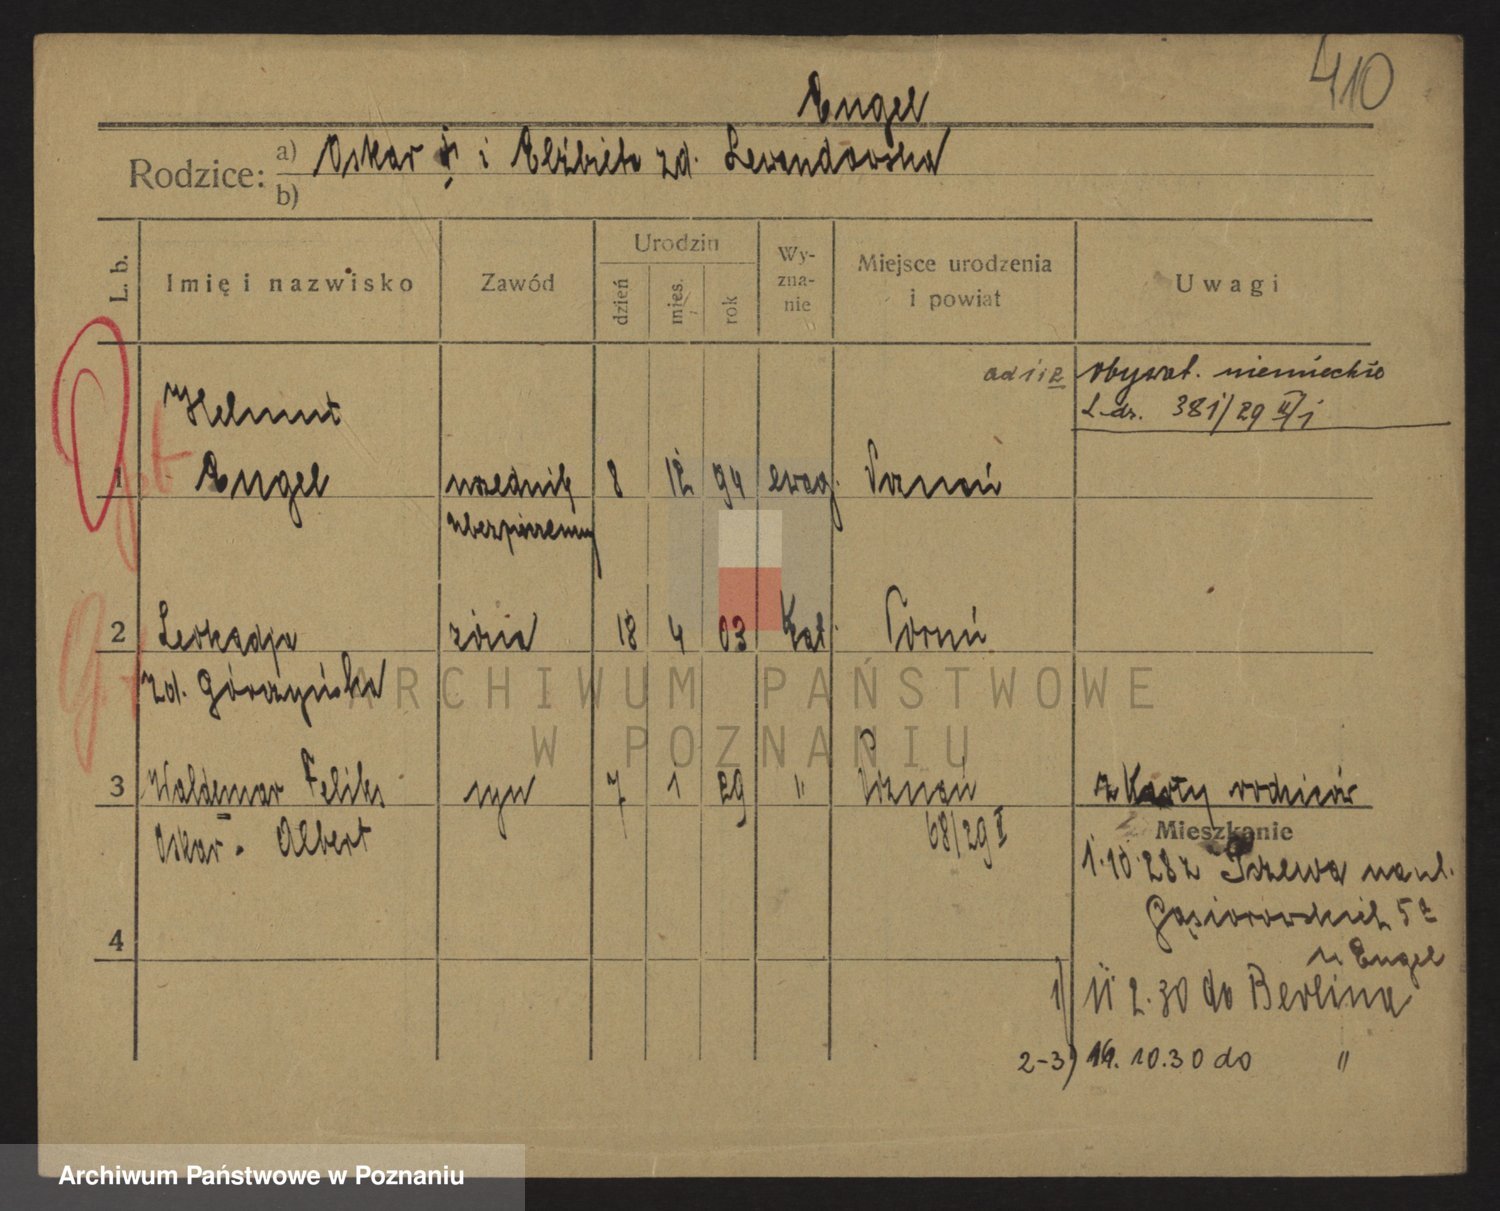 410
Engel
Rodzice: a) Oskar i Elżbieta zd. Lewandowska
b)
L. b. Imię i nazwisko Zawód Urodzin dzień mies. rok Wy-zna-nie Miejsce urodzenia i powiat Uwagi
ad 1 i 2 obywat. niemieckie
L. dz. 381/29 II/1
Helmut
1 Engel urzędnik 8 12 94 ewag. Poznań
ubezpieczeniowy
2 Leokadja żona 18 4 03 Kat. Toruń
zd. Górzyńska
3 Waldemar Feliks syn 7 1 29 " Poznań z Karty rodziców
Oskar - Albert 68/29 I
Mieszkanie
1.10.28 z Tczewa na ul.
Gąsiorowskich 5a
u Engel
4
1) 11 2.30 do Berlina
2-3) 14. 10.30 do "
ARCHIWUM PAŃSTWOWE
W POZNANIU
Archiwum Państwowe w Poznaniu